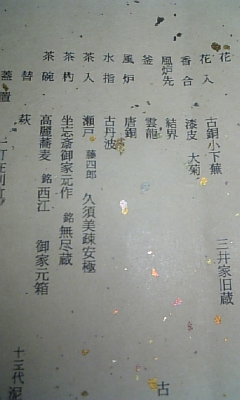 花
花入 古銅小下蕪 三井家旧蔵
香合 漆皮 大菊
風炉先 結界
釜 雲龍
風炉 唐銅
水指 古丹波
茶入 瀬戸 藤四郎 久須美疎安極
茶杓 坐忘斎御家元作 銘 無尽蔵
茶碗 高麗蕎麦 銘 西江 御家元箱
替 萩 十五代
蓋置
古